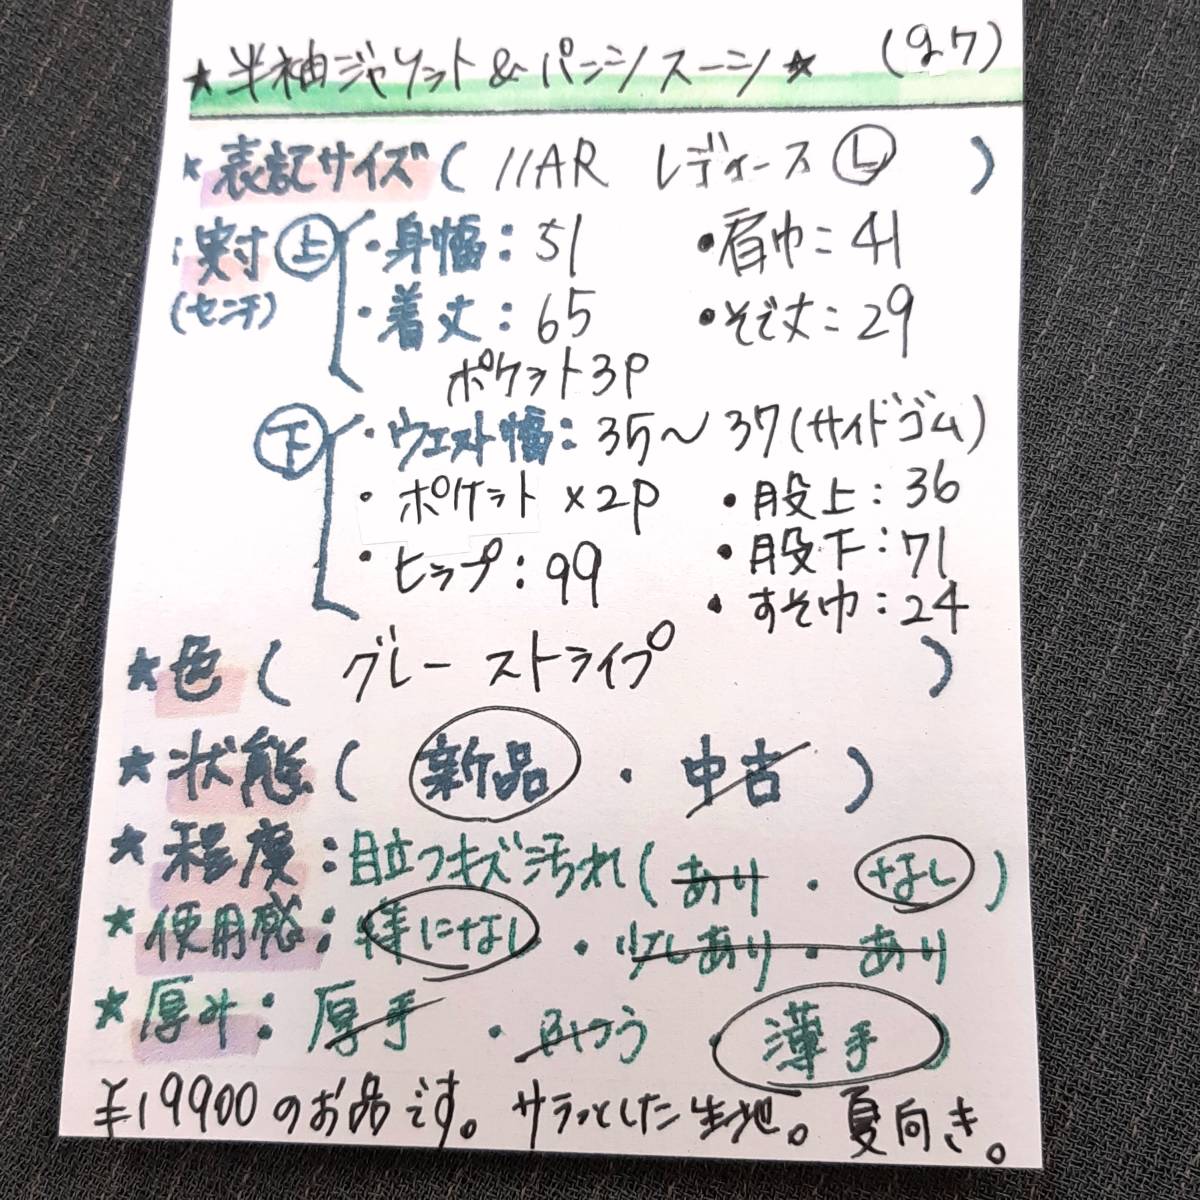 ★半袖ジャケット&パンツスーツ★ (g7)
★表記サイズ( 11AR レディース Ⓛ )
実寸 上 ・身幅:51 ・肩巾:41
(センチ) ・着丈:65 ・そで丈:29
ポケット3P
下 ・ウエスト幅:35～37(サイドゴム)
・ポケット×2P ・股上:36
・ヒップ:99 ・股下:71
・すそ巾:24
★色( グレーストライプ )
★状態( 新品 ・ 中古 )
★程度:目立つキズ汚れ(あり・なし)
★使用感:特になし・少しあり・あり
★厚み:厚手・ふつう 薄手
¥19900のお品です。サラッとした生地。夏向き。